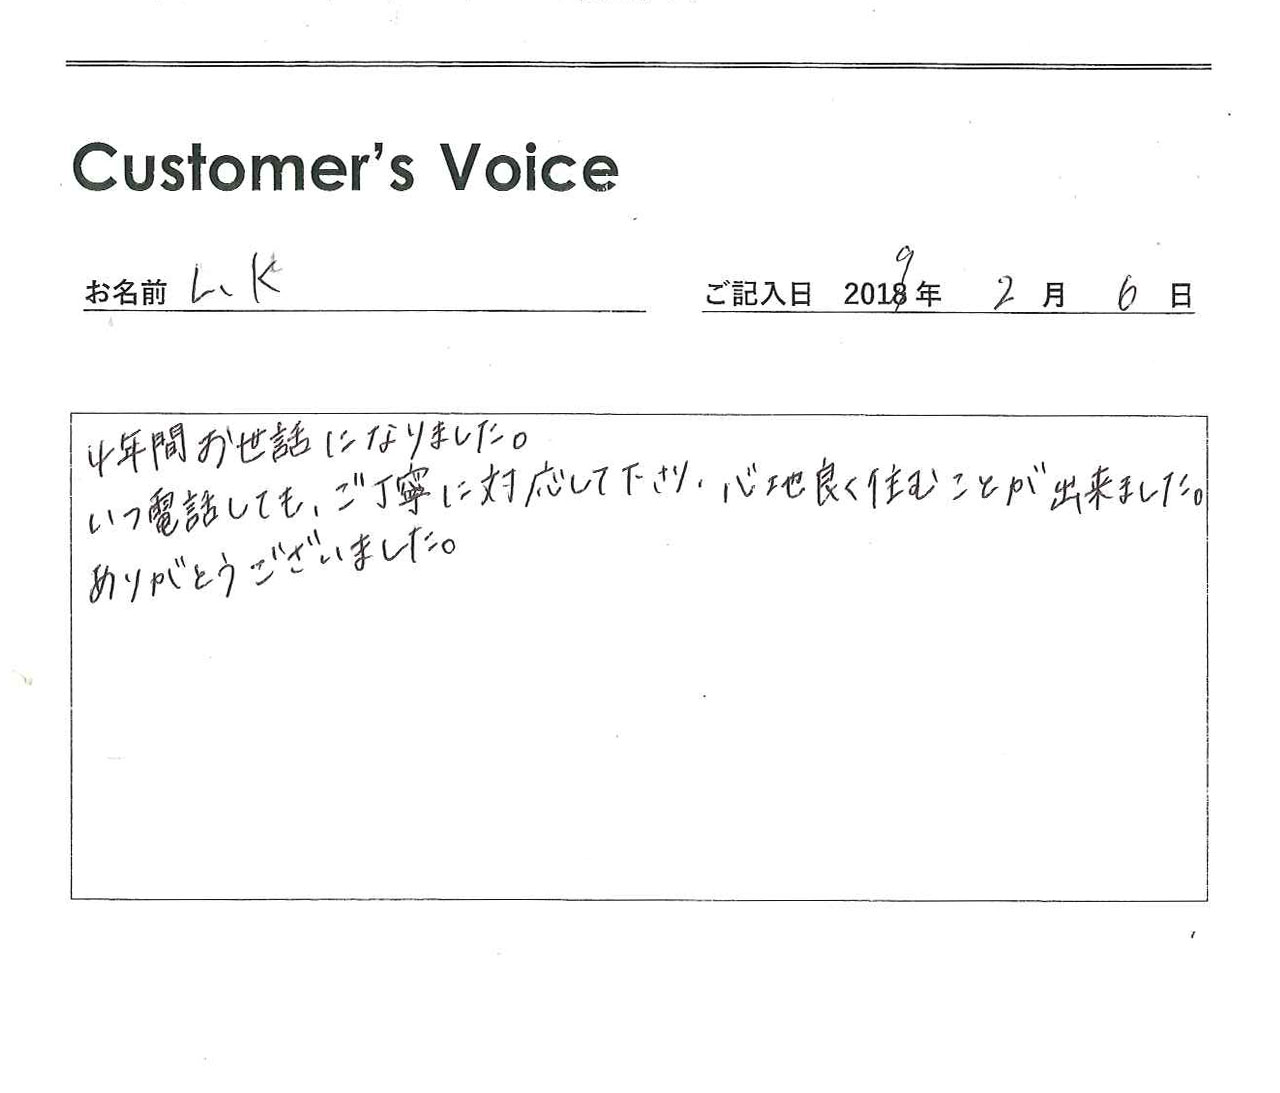 Customer's Voice
お名前 L.K
ご記入日 2019年 2月 6日
4年間お世話になりました。
いつ電話しても、ご丁寧に対応して下さり、心地良く住むことが出来ました。
ありがとうございました。